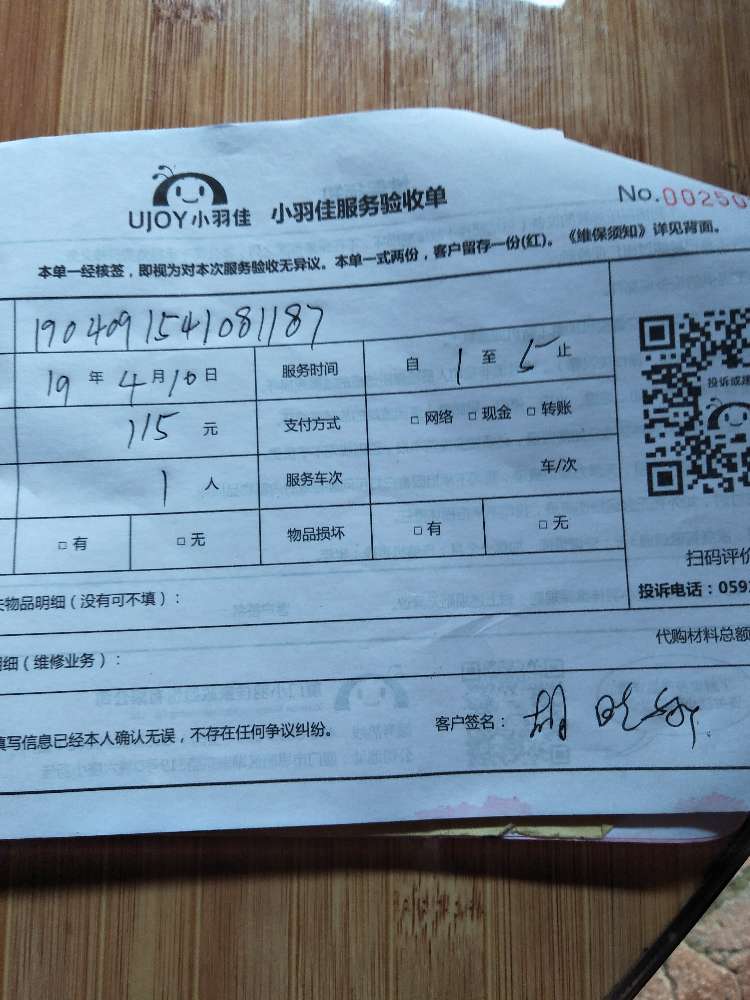 UJOY小羽佳 小羽佳服务验收单
No.00250
本单一经核签，即视为对本次服务验收无异议。本单一式两份，客户留存一份(红)。《维保须知》详见背面。
1904091541081187
19 年 4 月 10 日 服务时间 自 1 至 5 止
投诉或建
115 元 支付方式 □ 网络 □ 现金 □ 转账
1 人 服务车次 车/次
□ 有 □ 无 物品损坏 □ 有 □ 无
扫码评价
物品明细（没有可不填）：
投诉电话：059
细（维修业务）：
代购材料总额
填写信息已经本人确认无误，不存在任何争议纠纷。 客户签名：